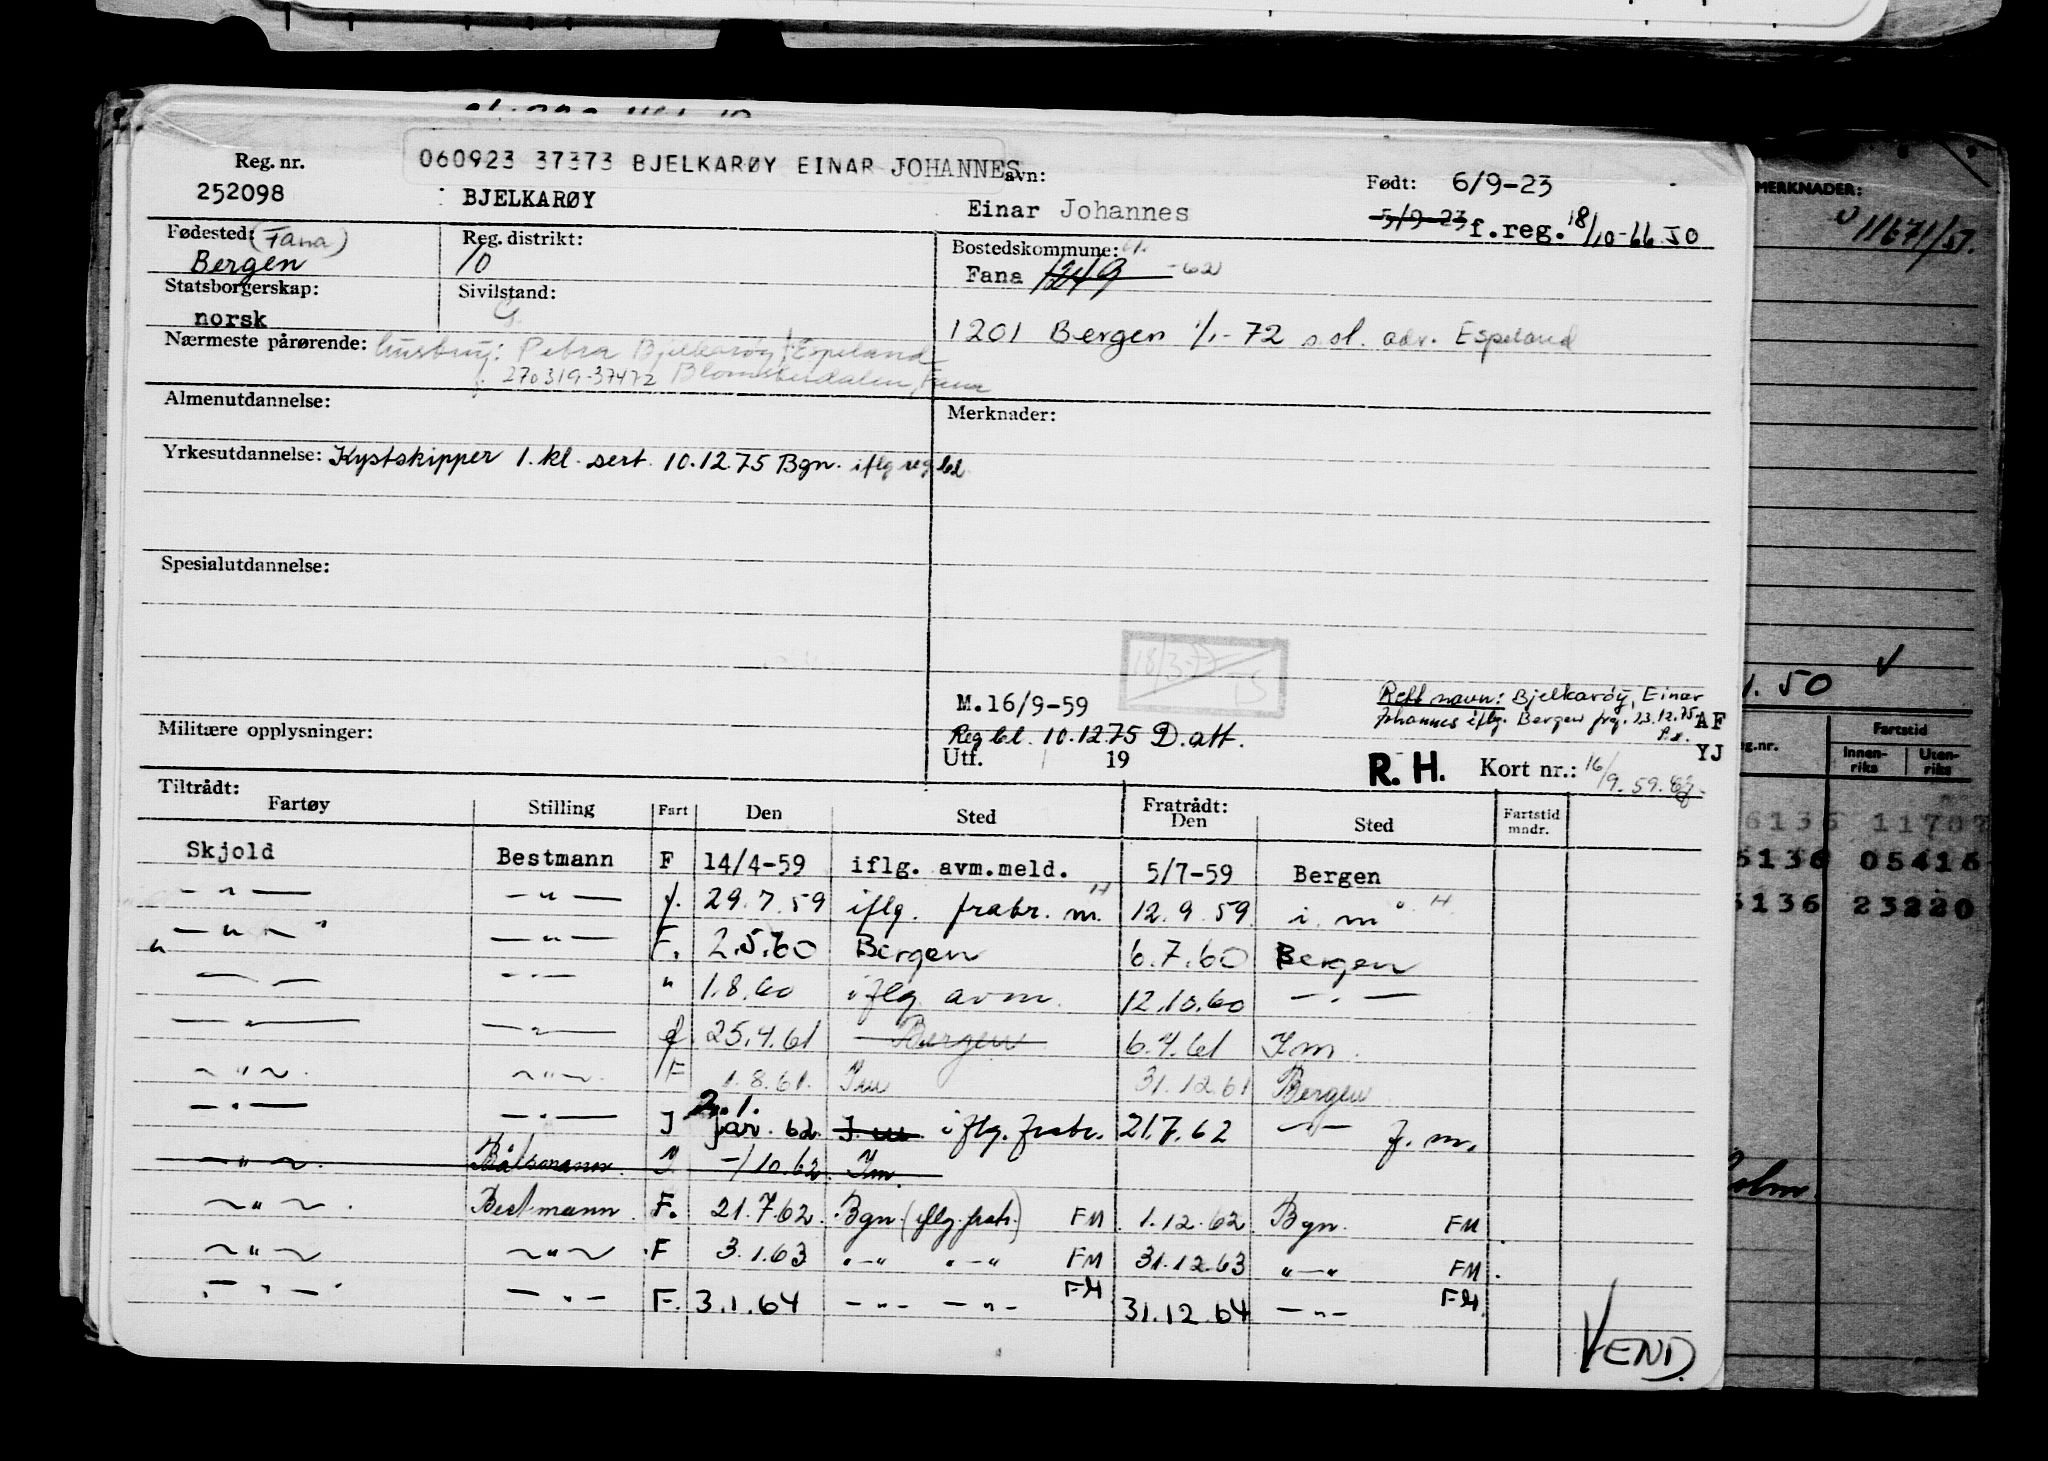 060923 37373 BJELKARØY EINAR JOHANNES
Reg. nr. avn: Født: 6/9-23
252098 BJELKARØY Einar Johannes 5/9-23 f.reg. 18/10-66 JO
Fødested: (Fana) Reg. distrikt: Bostedskommune:
Bergen 10 Fana 1249 -62
Statsborgerskap: Sivilstand:
norsk G. 1201 Bergen 1/1-72 s.sl. adr. Espeland
Nærmeste pårørende: hustru: Petra Bjelkarøy f Espeland
f. 270319-37472 Blomsterdalen, Fana
Almenutdannelse: Merknader:
Yrkesutdannelse: Kystskipper 1. kl. sert. 10.12.75 Bgn. iflg reg bl.
Spesialutdannelse:
M.16/9-59 Rett navn: Bjelkarøy, Einar
Johannes iflg. Bergen freg. 23.12.75 AF
Militære opplysninger: Reg bl. 10.12.75 D.att. YJ
Utf. 19 R. H. Kort nr.: 16/9.59.
Tiltrådt: Fratrådt:
Fartøy Stilling Fart Den Sted Den Sted Fartstid mndr.
Skjold Bestmann F 14/4-59 iflg. avm.meld. 5/7-59 Bergen
— " — — " — f. 29.7.59 iflg. fratr. m. H 12.9.59 i. m " H
— " — — " — F. 2.5.60 Bergen 6.7.60 Bergen
" — — — " — " 1.8.60 iflg avm. 12.10.60 — " —
— " — — " — f. 25.4.61 Bergen 6.7.61 I m.
— " — — " — F 1.8.61. Im 31.12.61 Bergen
— " — — " — J 2.1. jar. 62 I m iflg. fratr. 21.7.62 — " — f. m.
— " — Båtsmann. J -/10.62 Im.
— " — Bestmann F. 21.7.62 Bgn (iflg. fratr.) FM 1.12.62 Bgn. FM
— " — — " — F 3.1.63 — " — — " — FM 31.12.63 — " — FM
— " — — " — F. 3.1.64 — " — — " — FM 31.12.64 — " — FM
VEND.
MERKNADER:
11671/51.
1.50
g.nr. Fartstid
Innen-riks Uten-riks
6136 11702
6136 05416
6136 23220